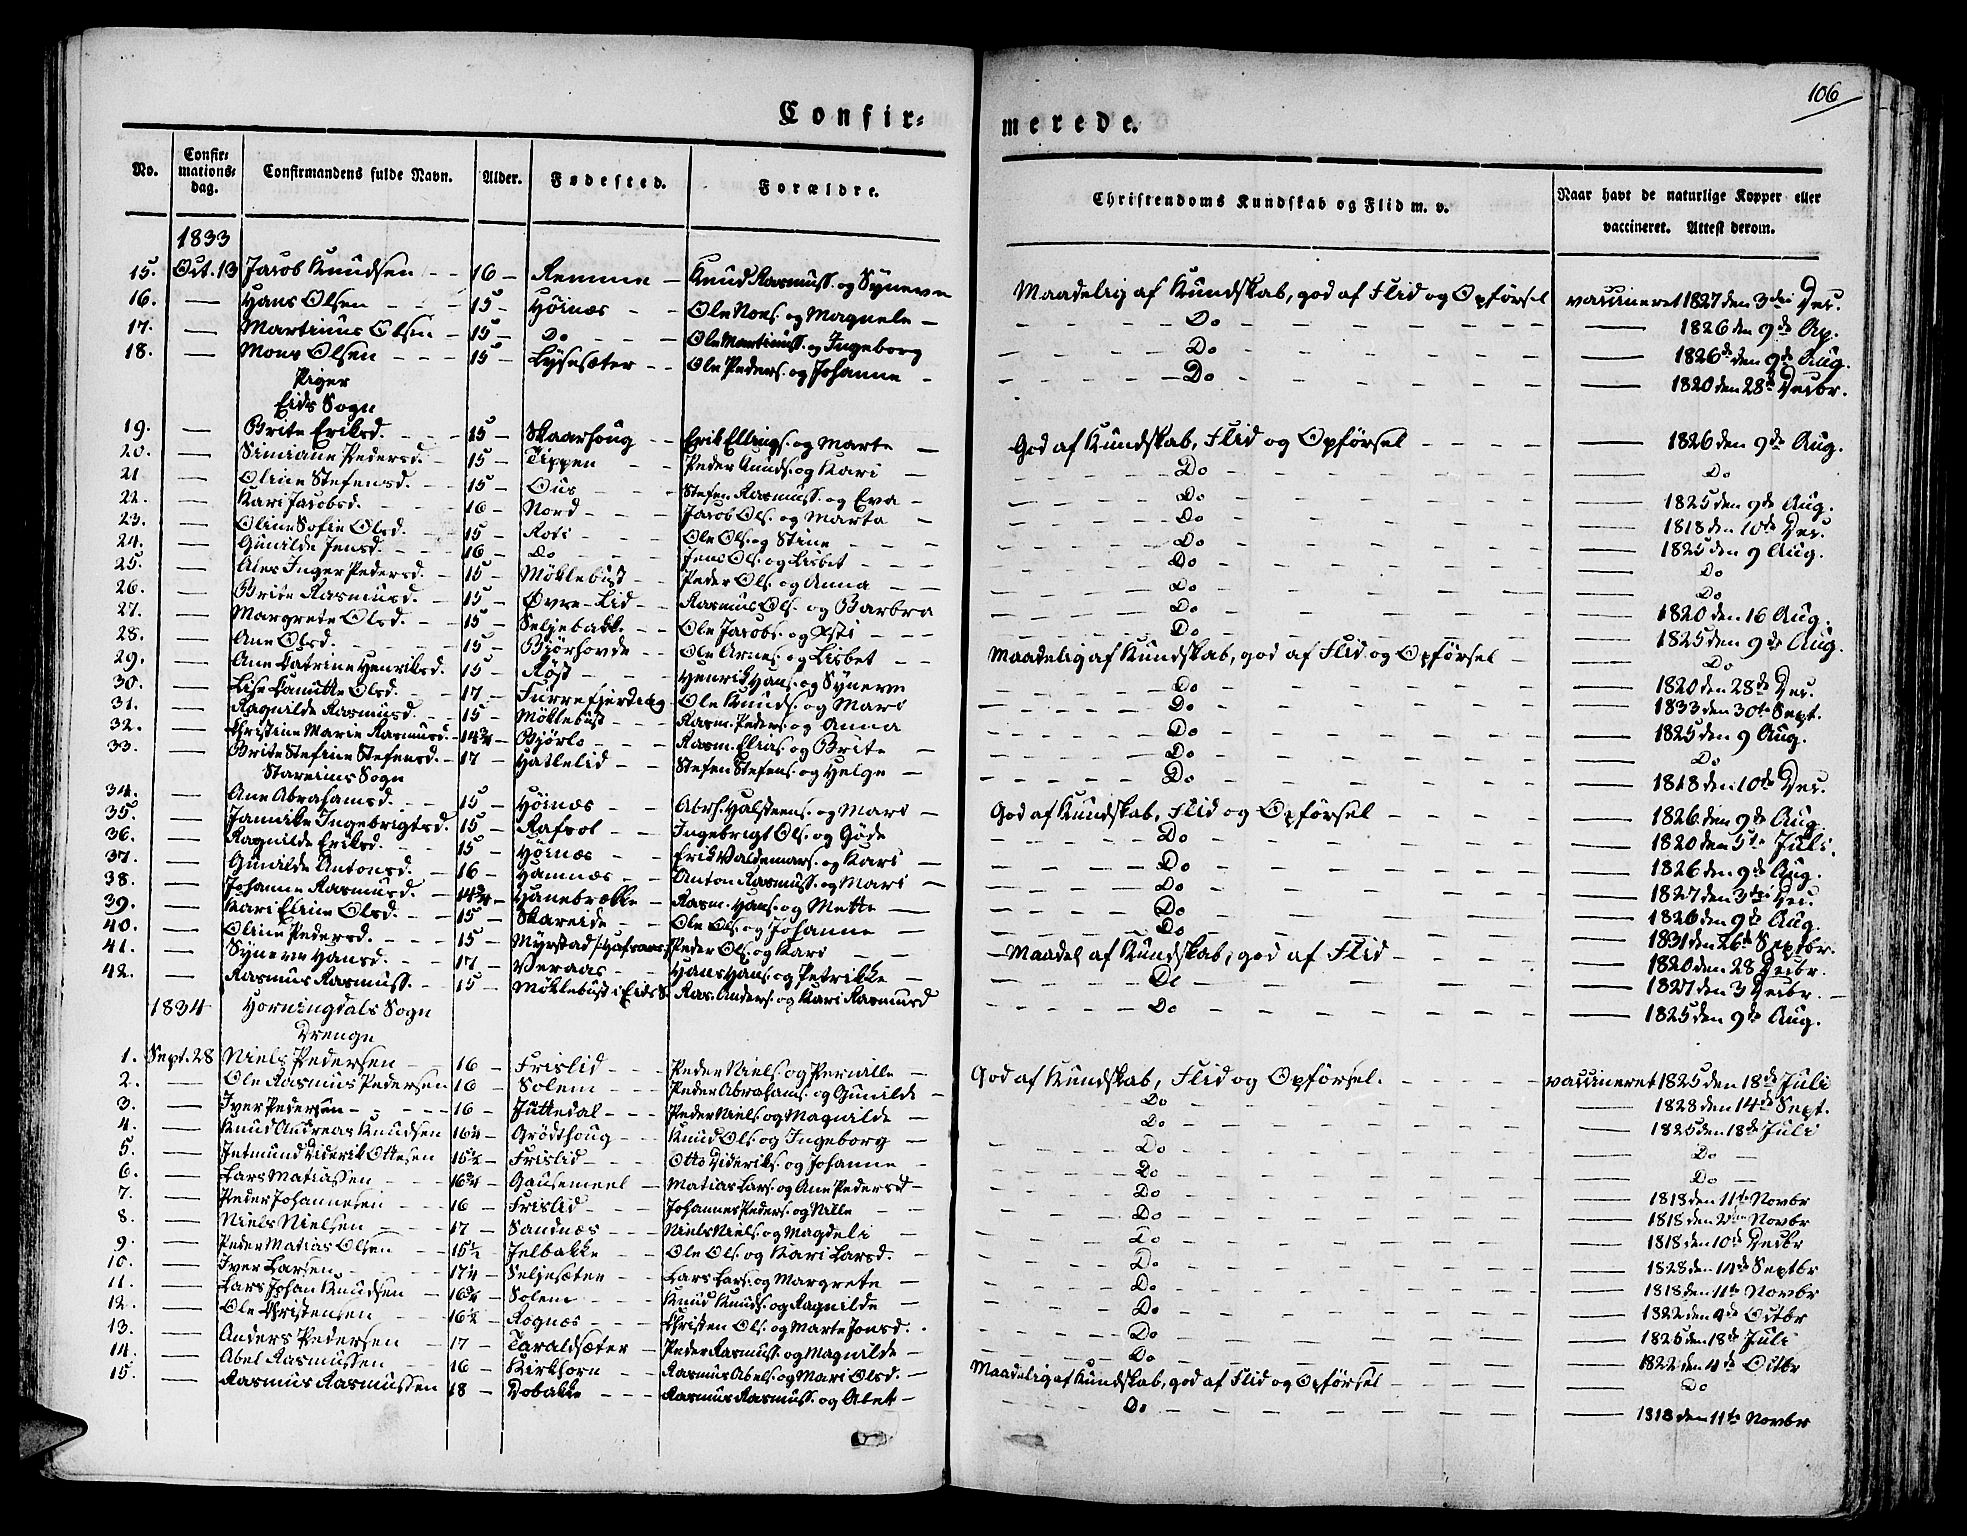 106
Confir-
merede.
No. Confirmationsdag. Confirmandens fulde Navn. Alder. Fødested. Forældre. Christendoms Kundskab og Flid m. v. Naar havt de naturlige Kopper eller vaccineret. Attest derom.
1833
15. Oct. 13 Jacob Knudsen 16 Remme Knud Rasmuss. og Syneve Maadelig af Kundskab, god af Flid og Opførsel vaccineret 1827 den 3die Dec.
16. — Hans Olsen 15 Høinæs Ole Nons. og Magnele Do — 1826 den 9de Ap.
17. — Martinus Olsen 15 Do Ole Martinuss. og Ingeborg Do — 1826 den 9de Aug.
18. — Mons Olsen 15 Lyssæter Ole Peders. og Johanne Do — 1820 den 28de Decbr.
Piger
Eids Sogn
19. — Brite Eriksd. 15 Skaarhoug Erik Ellings. og Marte God af Kundskab, Flid og Opførsel — 1826 den 9de Aug.
20. — Simiane Pedersd. 15 Tippen Peder Knuds. og Kari Do — Do
21 — Oline Stefensd. 15 Ous Stefen Rasmuss. og Eva Do — 1825 den 9de Aug.
22. — Kari Jacobsd. 16 Nord Jacob Ols. og Marta Do — 1818 den 10de Dec.
23. — Oline Sofie Olsd. 15 Roti Ole Ols. og Stine Do — 1825 den 9 Aug.
24. — Gunilde Jensd. 16 Do Jens Ols. og Lisbet Do — Do
25. — Ales Inger Pedersd. 15 Møklebust Peder Ols. og Anna Do — Do
26. — Brite Rasmusd. 15 Øvre-Lid Rasmus Ols. og Barbra Do — 1820 den 16 Aug.
27. — Margrete Olsd. 15 Seljebakk. Ole Jacobs. og Do — 1825 den 9de Aug.
28. — Ane Olsd. 15 Bjørhovde Ole Arnes. og Lisbet Maadelig af Kundskab, god af Flid og Opførsel — Do
29. — Ane Catrine Henriksd. 15 Røst Henrik Hans. og Synerve Do — 1820 den 28de Dec.
30. — Lise Canutte Olsd. 17 Furrefjerdiag Ole Knuds. og Mari Do — 1833 den 30te Sept.
31. — Ragnilde Rasmusd. 15 Møklebust Rasm. Peders. og Anna Do — 1825 den 9 Aug.
32. — Christine Marie Rasmusd. 14¾ Bjørlo Rasm. Elias. og Brite Do — Do
33. — Brite Stefine Stefensd. 17 Hatlelid Stefen Stefens. og Helge Do — 1818 den 10de Dec.
Stareims Sogn
34. — Ane Abrahamsd. 15 Høinæs Abrh. Halsteens. og Mari God af Kundskab, Flid og Opførsel — 1826 den 9de Aug.
35. — Jannike Ingebrigtsd. 15 Rafvol Ingebrigt Ols. og Gøde Do — 1820 den 5te Juli.
36. — Ragnilde Eriksd. 15 Høinæs Erik Valdemars. og Kari Do — 1826 den 9de Aug.
37. — Gunilde Antonsd. 16 Hamnæs Anton Rasmuss. og Mari Do — 1827 den 3die Dec.
38. — Johanne Rasmusd. 14¾ Hanebrække Rasm. Hans. og Mette Do — 1826 den 9de Aug.
39. — Kari Eline Olsd. 15 Skareide Ole Ols. og Johanne Do — 1831 den 26de Septbr.
40. — Oline Pedersd. 15 Myrstad Peder Ols. og Kari Maadel af Kundskab, god af Flid — 1820 den 28 Decbr.
41. — Syneve Hansd. 17 Veraas Hans Hans. og Petrikke Do — 1827 den 3 Decbr.
42. — Rasmus Rasmuss. 15 Møklebust i Eids S. Ras. Anders. og Kari Rasmusd Do — 1825 den 9de Aug.
1834 Horningdals Sogn
Drenge
1. Sept. 28 Niels Pedersen 16 Frislid Peder Niels. og Pernille God af Kundskab, Flid og Opførsel. vaccineret 1825 den 18de Juli
2. — Ole Rasmus Pedersen 16 Solem Peder Abrahams. og Gunilde Do — 1828 den 14de Sept.
3. — Iver Pedersen 16 Juttedal Peder Niels. og Magnilde Do — 1825 den 18de Juli
4. — Knud Andreas Knudsen 16¼ Grødthoug Knud Ols. og Ingeborg Do — Do
5. — Jetmund Diderik Ottesen 15½ Frislid Otto Dideriks. og Johanne Do — Do
6. — Lars Matiassen 16¾ Gausemeel Matias Lars. og Ane Pedersd Do — 1818 den 11te Novbr
7. — Peder Johannesen 16 Frislid Johannes Peders. og Nille Do — 1818 den Novbr
8. — Niels Nielsen 17 Sandnæs Niels Niels. og Magdeli Do — 1818 den 10de Decbr
9. — Peder Matias Olsen 15½ Jelbakke Ole Ols. og Kari Larsd. Do — 1828 den 14de Septbr
10. — Iver Larsen 17¼ Seljesæter Lars Lars. og Margrete Do — 1818 den 11te Novbr
11. — Lars Johan Knudsen 16¾ Solem Knud Knuds. og Ragnilde Do — 1822 den 4de Octbr
12. — Ole Christensen 16½ Rognæs Christen Ols. og Marte Jonsd. Do — 1825 den 18de Juli
13. — Anders Pedersen 17 Taraldsæter Peder Rasmuss. og Magnilde Do — 1822 den 4de Octbr
14. — Abel Rasmussen 16 Kirkhorn Rasmus Abels. og Mari Olsd. Maadelig af Kundskab, god af Flid og Opførsel — Do
15. — Rasmus Rasmussen 18 Dobakke Rasmus Rasmuss. og Abet Do — 1818 den 11te Novbr